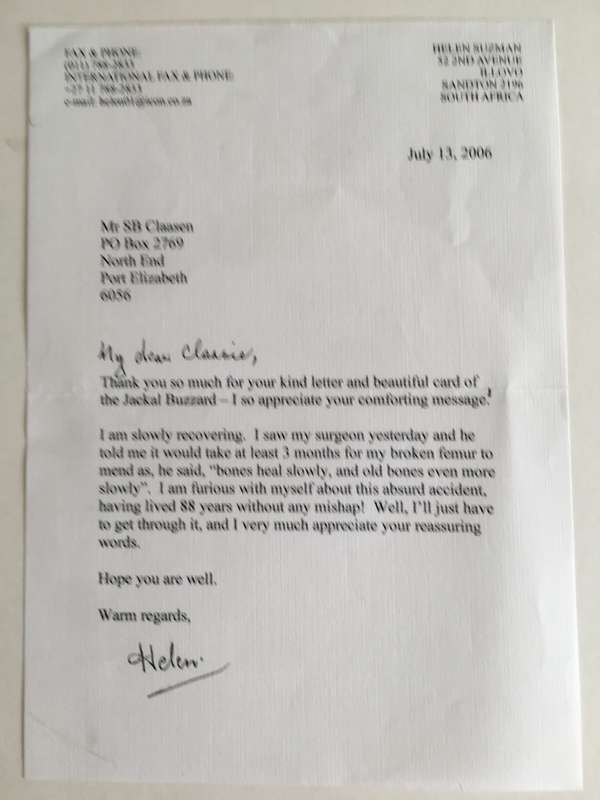 FAX & PHONE:
(011) 788-2833
INTERNATIONAL FAX & PHONE:
+27 11 788-2833
e-mail: helen01@icon.co.za
HELEN SUZMAN
52 2ND AVENUE
ILLOVO
SANDTON 2196
SOUTH AFRICA
July 13, 2006
Mr SB Claasen
PO Box 2769
North End
Port Elizabeth
6056
My dear Claasie,
Thank you so much for your kind letter and beautiful card of
the Jackal Buzzard – I so appreciate your comforting message!
I am slowly recovering.  I saw my surgeon yesterday and he
told me it would take at least 3 months for my broken femur to
mend as, he said, “bones heal slowly, and old bones even more
slowly”.  I am furious with myself about this absurd accident,
having lived 88 years without any mishap!  Well, I’ll just have
to get through it, and I very much appreciate your reassuring
words.
Hope you are well.
Warm regards,
Helen.